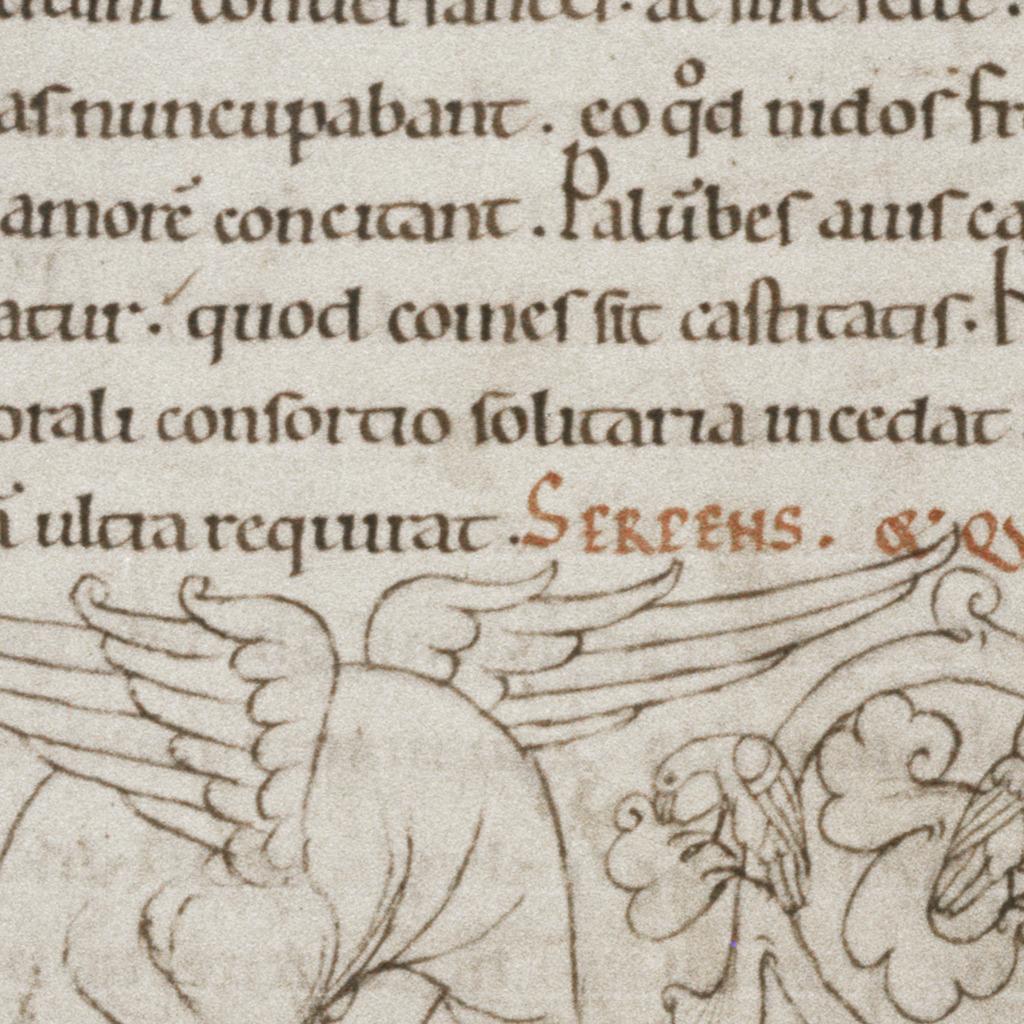 as nuncupabant. eo qͦd nidos fr
amorē concitant. Palūbes auis ca
atur. quod comes sit castitatis.
orali consortio solitaria incedat
ultra requirat. SERPENS. &